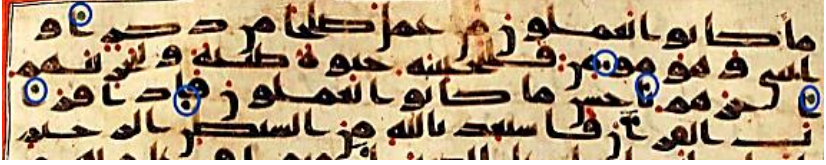 ما كانوا يعملون من عمل صلحا من ذكر او
انثى وهو مومن فلنحيينه حيوة طيبة ولنجزينهم
اجرهم باحسن ما كانوا يعملون فاذا قرا
ت القران فاستعذ بالله من الشيطن الرجيم